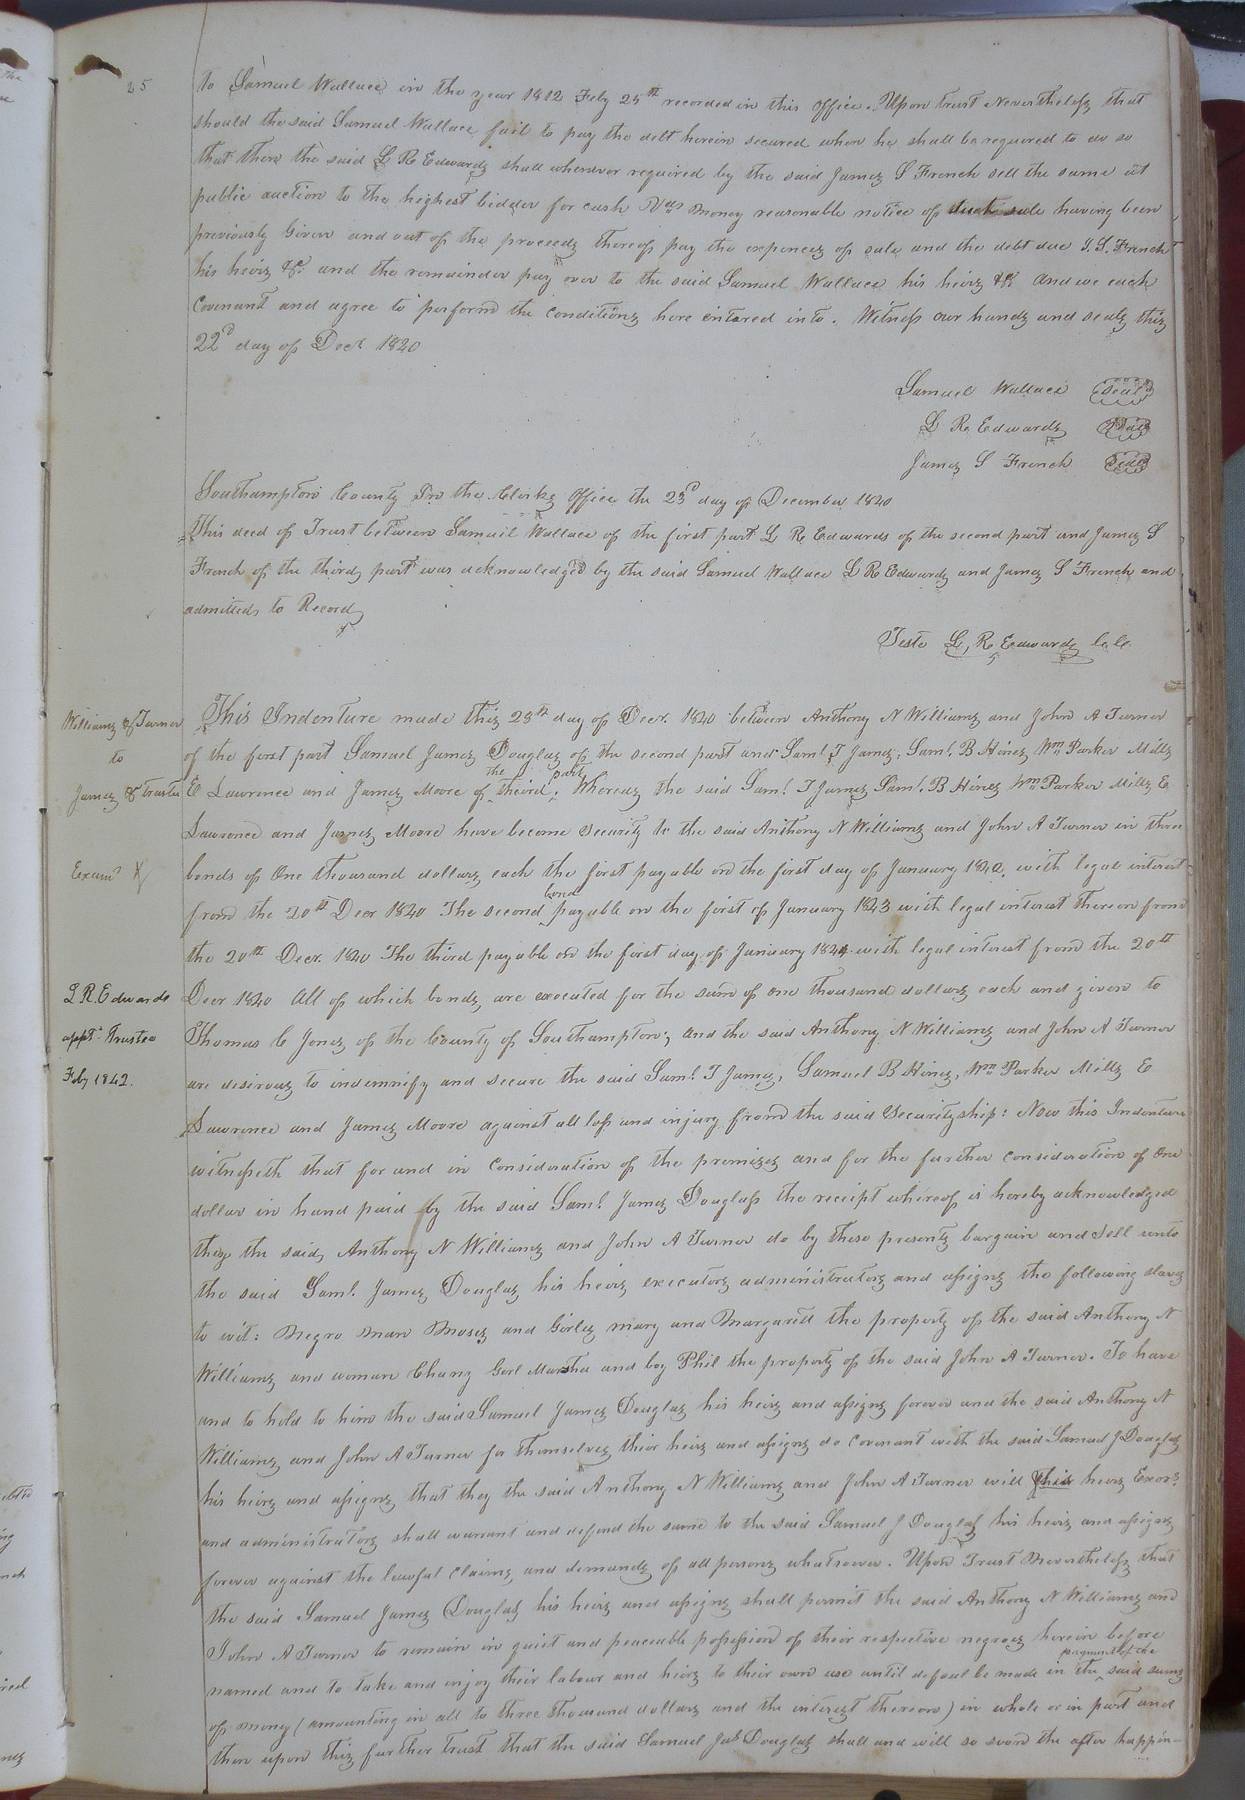 25
to Samuel Wallace in the year 1812 Feby 25th recorded in this office. Upon trust Nevertheless that
should the said Samuel Wallace fail to pay the debt herein secured when he shall be required to do so
that then the said L R Edwards shall whenever required by the said James S French sell the same at
public auction to the highest bidder for cash money reasonable notice of such sale having been
previously given and out of the proceeds thereof pay the expences of sale and the debt due J. S. French
his heirs &c. and the remainder pay over to the said Samuel Wallace his heirs &c And we each
Covenant and agree to perform the conditions here entered into. Witness our hands and seals this
22d day of Decr 1840
Samuel Wallace Seal
L R Edwards Seal
James S French Seal
Southampton County In the Clerks Office the 23d day of December 1840
This deed of Trust between Samuel Wallace of the first part L R Edwards of the second part and James S
French of the third part was acknowledged by the said Samuel Wallace L R Edwards and James S French and
admitted to Record
Teste L, R, Edwards C.C.
Williams & Turner
to
James & Trustee
Examd
L. R. Edwards
appt. Trustee
Feby 1842.
This Indenture made this 28th day of Decr. 1840 between Anthony N Williams and John A Turner
of the first part Samuel James Douglas of the second part and Saml. T James, Saml. B Hines Wm Parker Mills
E Lawrence and James Moore of the theird part. Whereas the said Saml. T James Saml. B Hines Wm Parker Mills E
Lawrence and James Moore have become security to the said Anthony N Williams and John A Turner in three
bonds of One thousand dollars each the first payable on the first day of January 1842. with legal interest
from the 20th Decr 1840 The second bond payable on the first of January 1843 with legal interest thereon from
the 20th Decr. 1840 The third payable on the first day of January 1844 with legal interest from the 20th
Decr 1840 All of which bonds are executed for the sum of one thousand dollars each and given to
Thomas C Jones of the County of Southampton; and the said Anthony N Williams and John A Turner
are desirous to indemnify and secure the said Saml. T James, Samuel B Hines, Wm Parker Mills E
Lawrence and James Moore against all loss and injury from the said Securityship: Now this Indenture
witnesseth that for and in consideration of the premises and for the further consideration of One
dollar in hand paid by the said Saml. James Douglass the receipt whereof is hereby acknowledged
they the said Anthony N Williams and John A Turner do by these presents bargain and sell unto
the said Saml. James Douglas his heirs executors administrators and assigns the following slaves
to wit: Negro man Moses and Girles mary and Margarett the property of the said Anthony N
Williams and woman Chany Gerl Martha and boy Phil the property of the said John A Turner. To have
and to hold to him the said Samuel James Douglas his heirs and assigns forever and the said Anthony N
Williams and John A Turner for themselves their heirs and assigns do covenant with the said Samuel J Douglas
his heirs and assigns that they the said Anthony N Williams and John A Turner will heirs Exors.
and administrators shall warrant and defend the same to the said Samuel J Douglas his heirs and assigns
forever against the lawful claims and demands of all persons whatsoever. Upon Trust Nevertheless that
the said Samuel James Douglas his heirs and assigns shall permit the said Anthony N Williams and
John A Turner to remain in quiet and peaceable possession of their respective negroes herein before
named and to take and injoy their labour and heirs to their own use until defaul be made in the payment of the said sums
of money (amounting in all to three thousand dollars and the interest thereon) in whole or in part and
then upon this further trust that the said Samuel Jas Douglas shall and will so soon the after happen-